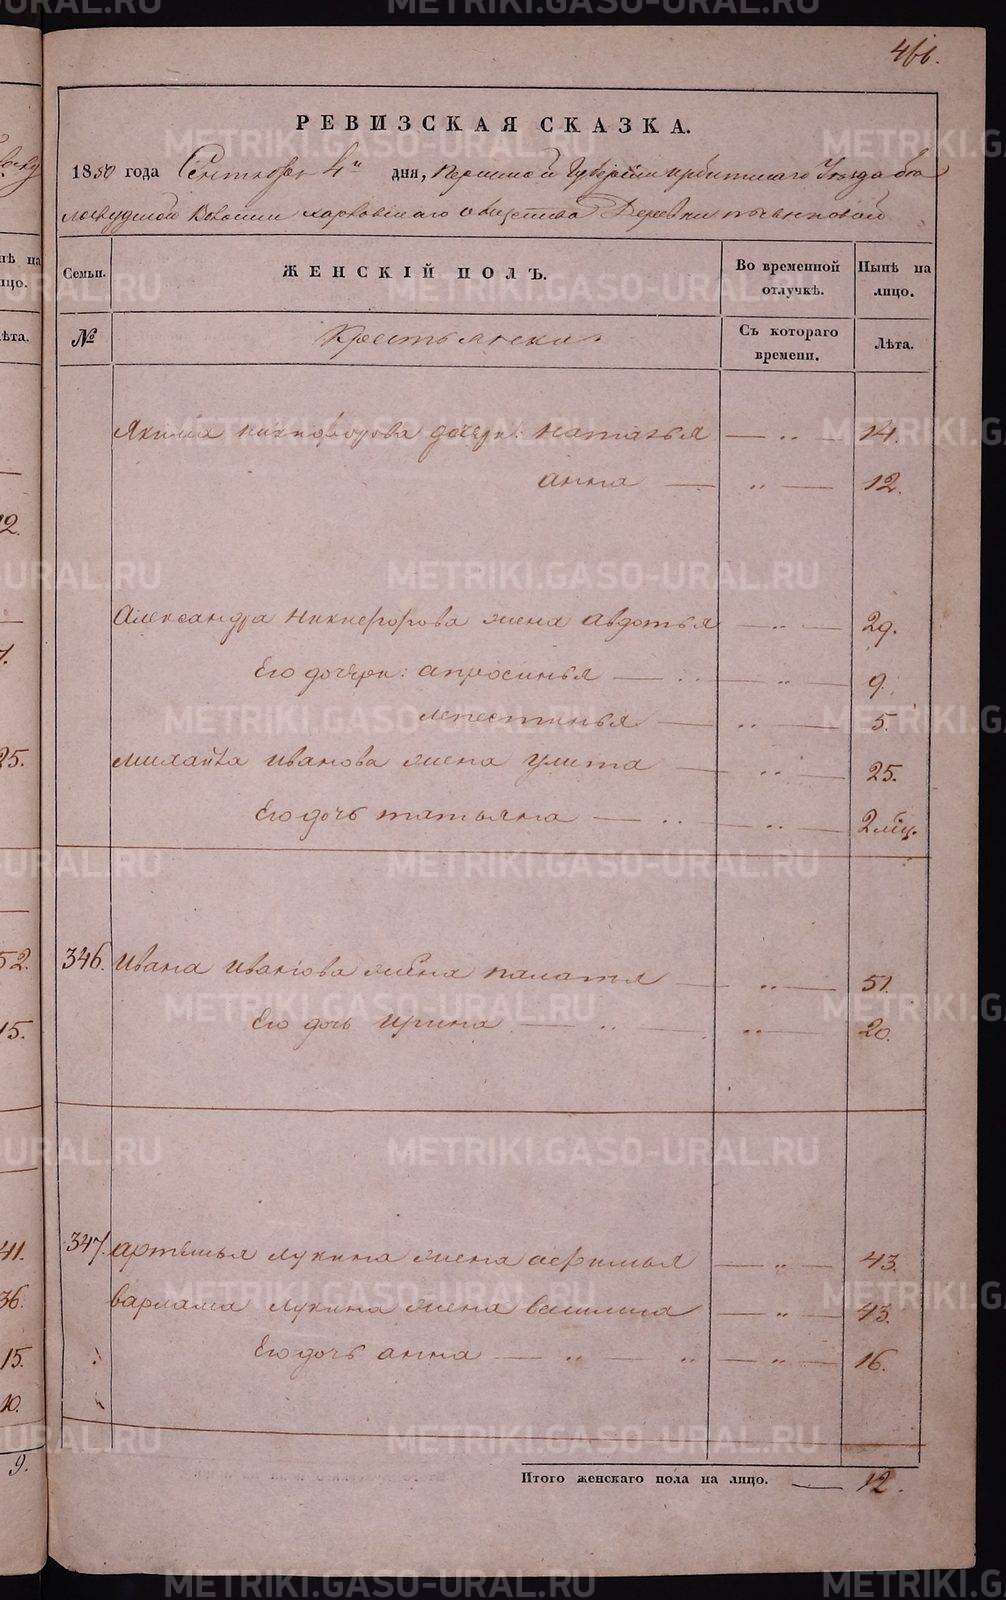 466.
РЕВИЗСКАЯ СКАЗКА.
1850 года Сентября 4 дня, Пермской Губернии Ирбитскаго Уезда бѣ
лослудской Волости харловскаго общества Деревни
нѣ на
лицо.
лѣта.
Семьи.
ЖЕНСКІЙ ПОЛЪ.
Во временной отлучкѣ.
Нынѣ на лицо.
№
Крестьянска
Съ котораго времени.
Лѣта.
Якима никифорова дочери: наталья — „ — 14.
анна — „ — 12.
Александра Никифорова жена авдотья — „ — 29.
Его дочери: апросинья — „ — „ — 9.
лепестинья — „ — 5.
михайла иванова жена улита — „ — 25.
Его дочь татьяна — „ — „ — 2 мѣц.
346. Ивана иванова жена палагья — „ — 51.
Его дочь ирина — „ — „ — 20.
347. артемья лукина жена афимья — „ — 43.
варлама лукина жена василиса — „ — 43.
Его дочь анна — „ — „ — „ — 16.
Итого женскаго пола на лицо. — 12.
12.
25.
52.
15.
41.
36.
15.
10.
9.
METRIKI.GASO-URAL.RU